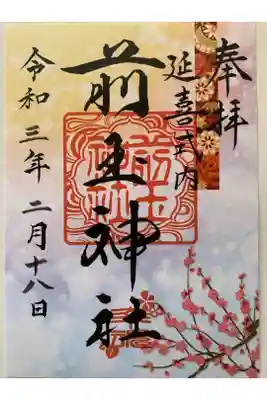 奉拝
延喜式内
前玉神社
令和三年二月十八日
前玉
神社